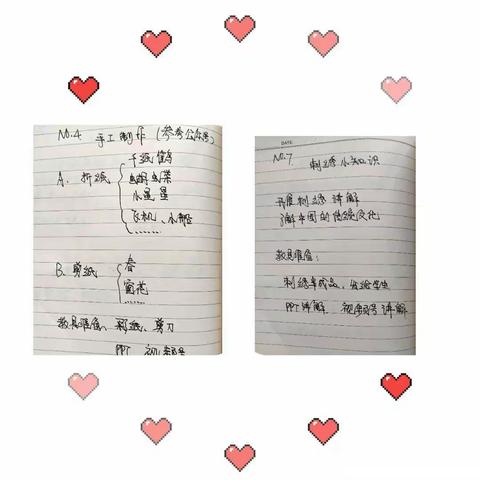 No.4 手工制作（参考公众号）
A. 折纸
千纸鹤
蝴蝶
小星星
飞机、小船
……
B. 剪纸
春
窗花
……
教具准备、彩纸、剪刀
PPT 视频号
DATE
No.7 刺绣小知识
开展刺绣讲解
了解中国的传统文化
教具准备：
刺绣半成品、发给学生
PPT讲解 视频号讲解